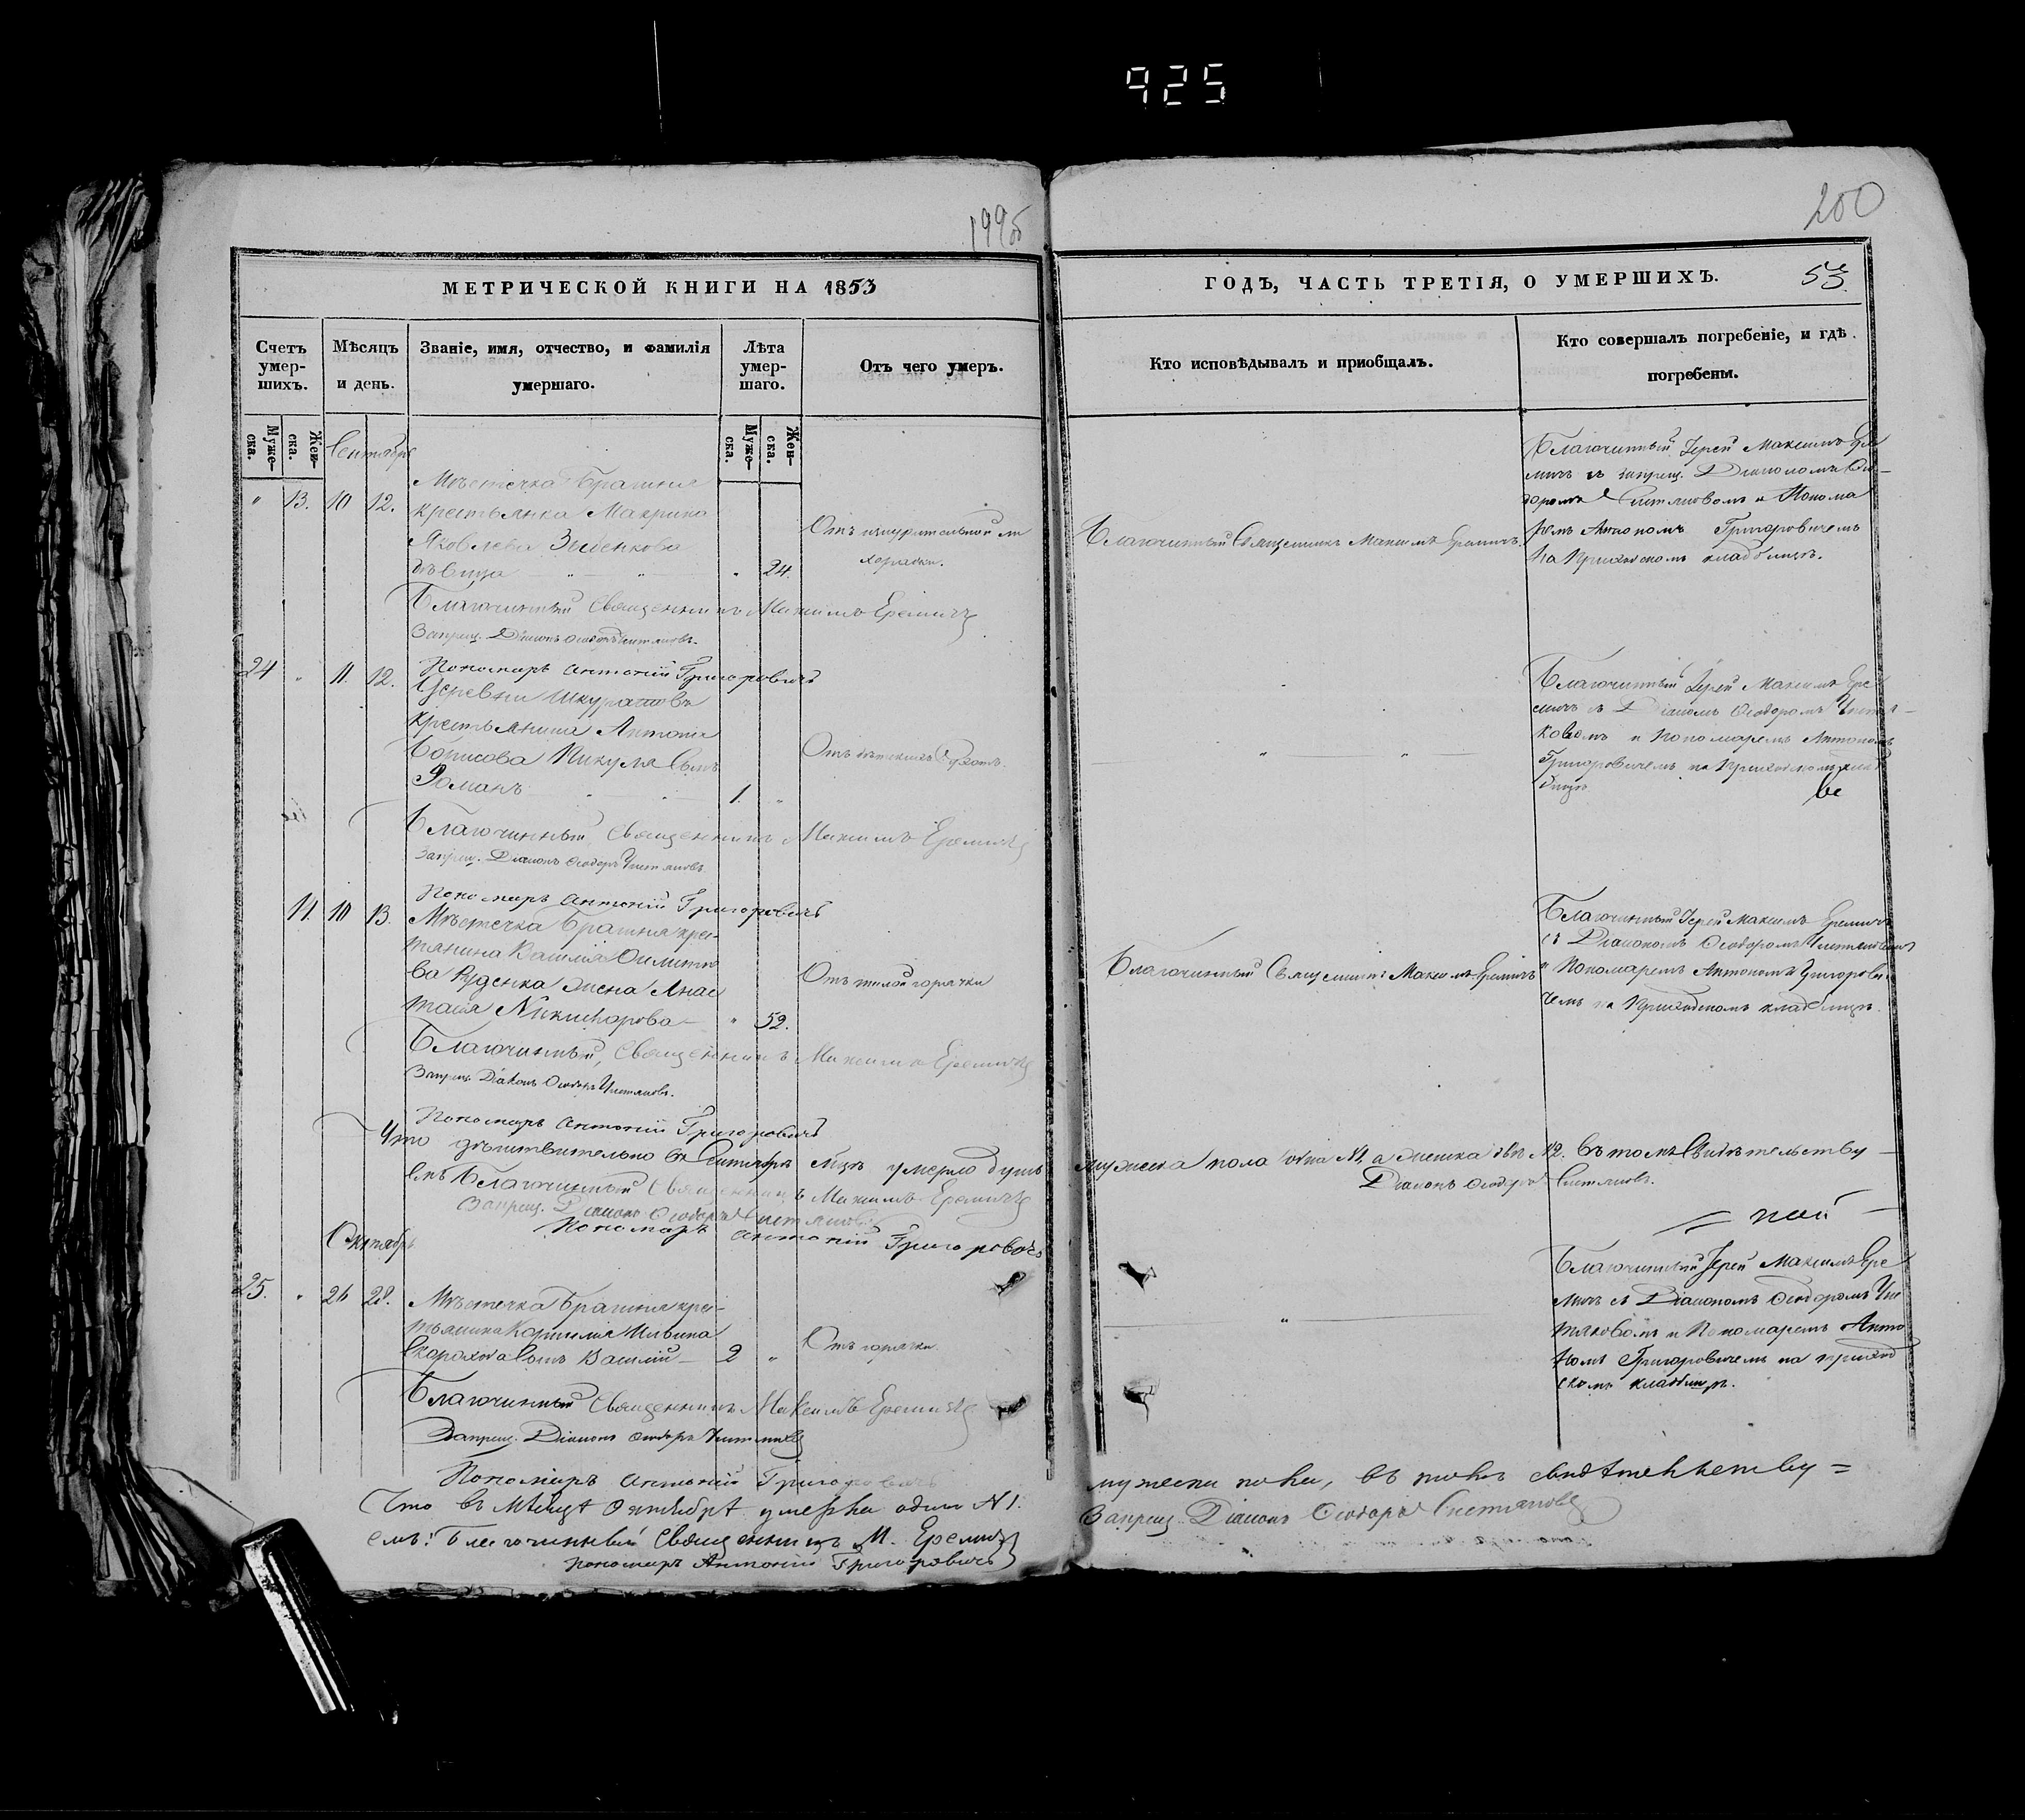 925
199об
200
МЕТРИЧЕСКОЙ КНИГИ НА 1853
ГОДЪ, ЧАСТЬ ТРЕТІЯ, О УМЕРШИХЪ.
53
Счетъ умер-шихъ.
Мѣсяцъ и день.
Званіе, имя, отчество, и фамилія умершаго.
Лѣта умер-шаго.
Отъ чего умеръ.
Кто исповѣдывалъ и приобщалъ.
Кто совершалъ погребеніе, и гдѣ погребены.
Муже-ска.
Жен-ска.
Муже-ска.
Жен-ска.
Сентябрь
" 13. 10 12.
Мѣстечка Брагиня
крестьянка Макрина
Яковлева
дѣвица " " " 24.
Отъ изнурительной ли
хорадки.
Благочинный Священникъ Максимъ Еремичъ
Благочинный Іерей Максимъ Ере
мичъ съ запрещ. Діакономъ Ѳео
доромъ Чистяковомъ и Понома
ремъ Антономъ Григоровичемъ
на Приходскомъ кладбищѣ.
Благочинный Священникъ Максимъ Еремичъ
Запрещ. Діаконъ Ѳеодоръ Чистяковъ.
Пономарь Антоній Григоровичъ
24 " 11. 12.
Деревни Шкуратовъ
крестьянина Антонія
Борисова Пикуля сынъ
Романъ 1. "
Благочинный Іерей Максимъ Ере
мичъ съ Діакономъ Ѳеодоромъ Чистя
ковомъ и Пономаремъ Антономъ
Григоровичемъ на Приходскомъ клад
бищѣ
Благочинный Священникъ Максимъ Еремичъ
Запрещ. Діаконъ Ѳеодоръ Чистяковъ
Пономарь Антоній Григоровичъ
10 13.
Мѣстечка Брагиня кре-
стянина Василія Филипо
ва Руденка жена Анас
тасія Никифорова " 52.
Отъ гнилой горячки
Благочинный Священникъ Максимъ Еремичъ
Благочинный Іерей Максимъ Еремичъ
съ Діакономъ Ѳеодоромъ Чистяковомъ
и Пономаремъ Антономъ Григорови
чемъ на Приходскомъ кладбищѣ.
Благочинный Священникъ Максимъ Еремичъ
Запрещ. Діаконъ Ѳеодоръ Чистяковъ.
Пономарь Антоній Григоровичъ
Что дѣйствительно въ Сентябрѣ м̃цѣ умерло душъ мужеска пола одна №1. а женска двѣ №2. Въ томъ Свидѣтельству
емъ Благочинный Священникъ Максимъ Еремичъ
Діаконъ Ѳеодоръ Чистяковъ.
Запрещ. Діаконъ Ѳеодоръ Чистяковъ
Пономарь Антоній Григоровичъ
Октябрь
25. " 26 28.
Мѣстечка Брагиня кре-
стьянина Корнилія Ильина
Скорохода Сынъ Василій 2 "
Отъ горячки
Благочинный Іерей Максимъ Ере
мичъ съ Діакономъ Ѳеодоромъ Чис
тяковомъ и Пономаремъ Анто
номъ Григоровичемъ на приход
скомъ кладбищѣ.
Благочинный Священникъ Максимъ Еремичъ
Запрещ. Діаконъ Ѳеодоръ Чистяковъ
Пономарь Антоній Григоровичъ
Что въ Мѣсяцѣ Октябрѣ умерла одна №1. мужеска пола, въ томъ свидѣтельству=
емъ: Благочинный Священникъ М. Еремичъ
Запрещ. Діаконъ Ѳеодоръ Чистяковъ
пономарь Антоній Григоровичъ